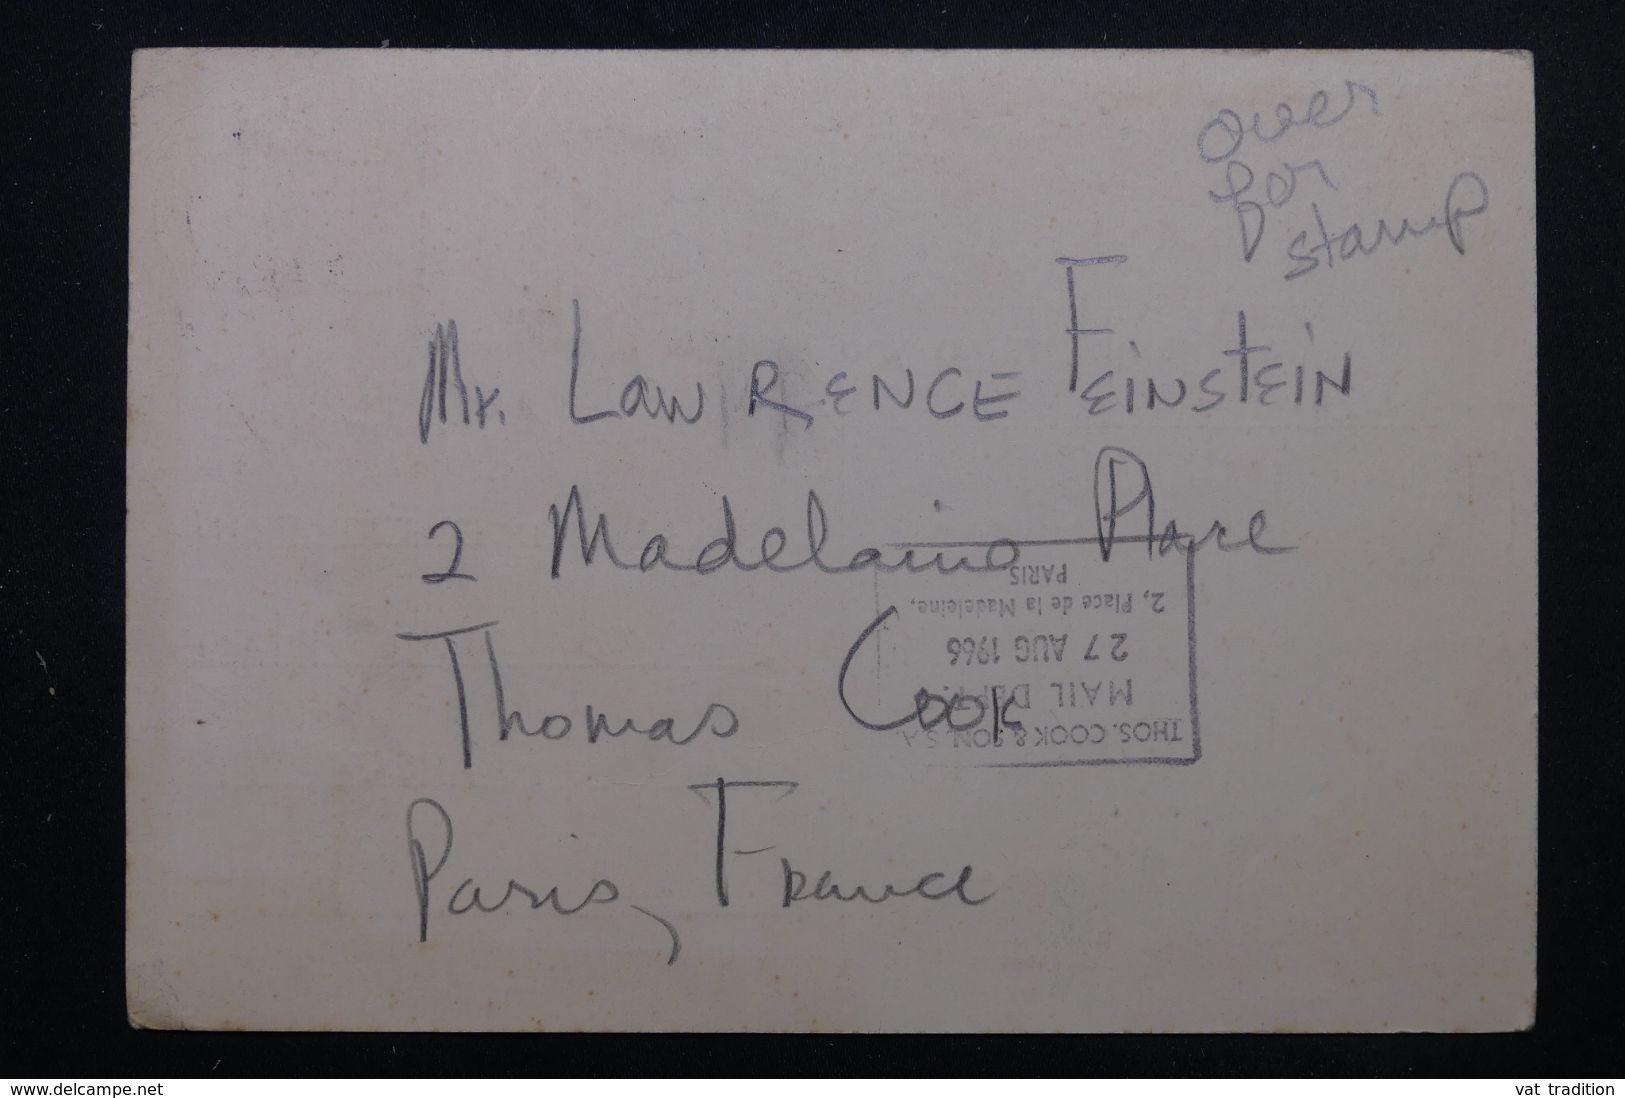 over
for
stamp
Mr. LAWRENCE FEINSTEIN
2 Madelaine Place
Thomas Cook
Paris, France
THOS. COOK & SON S.A.
MAIL DEPT.
27 AUG 1966
2, Place de la Madeleine,
PARIS
www.delcampe.net
vat_tradition